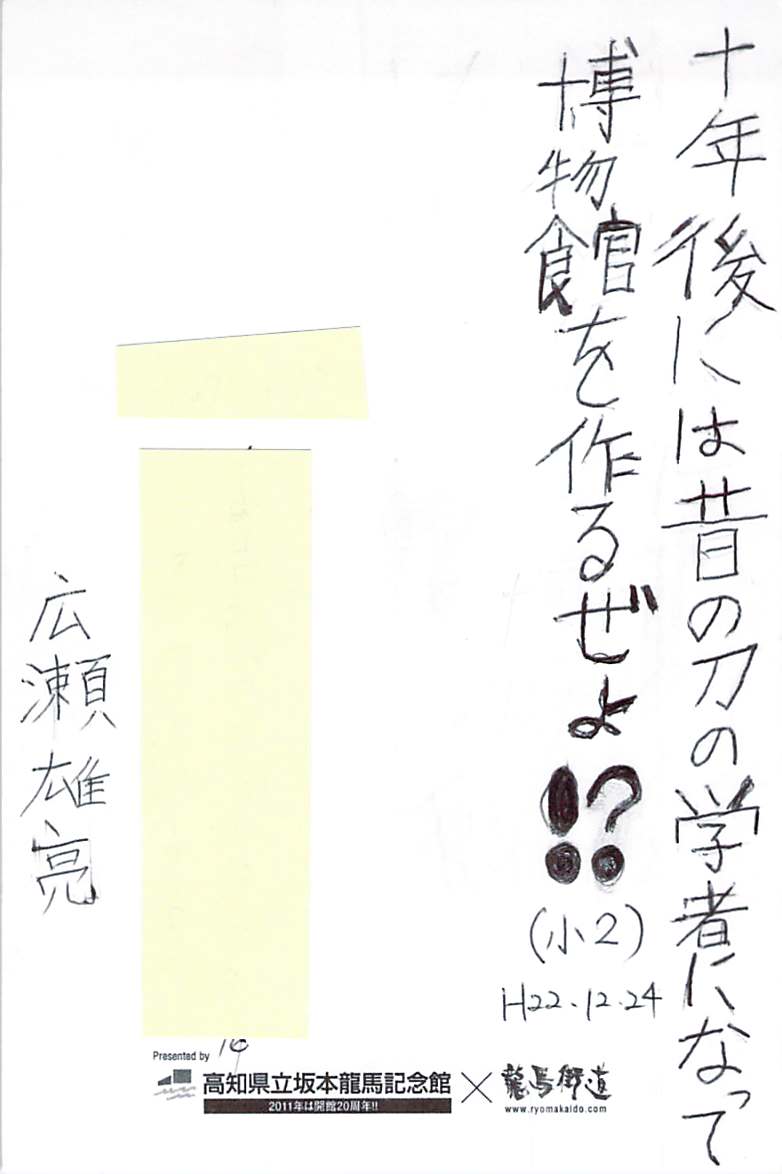 十年後には昔の刀の学者になって
博物館を作るぜよ!?
(小2)
H22.12.24
広瀬雄亮
Presented by
高知県立坂本龍馬記念館×龍馬街道
2011年は開館20周年!!
www.ryomakaido.com